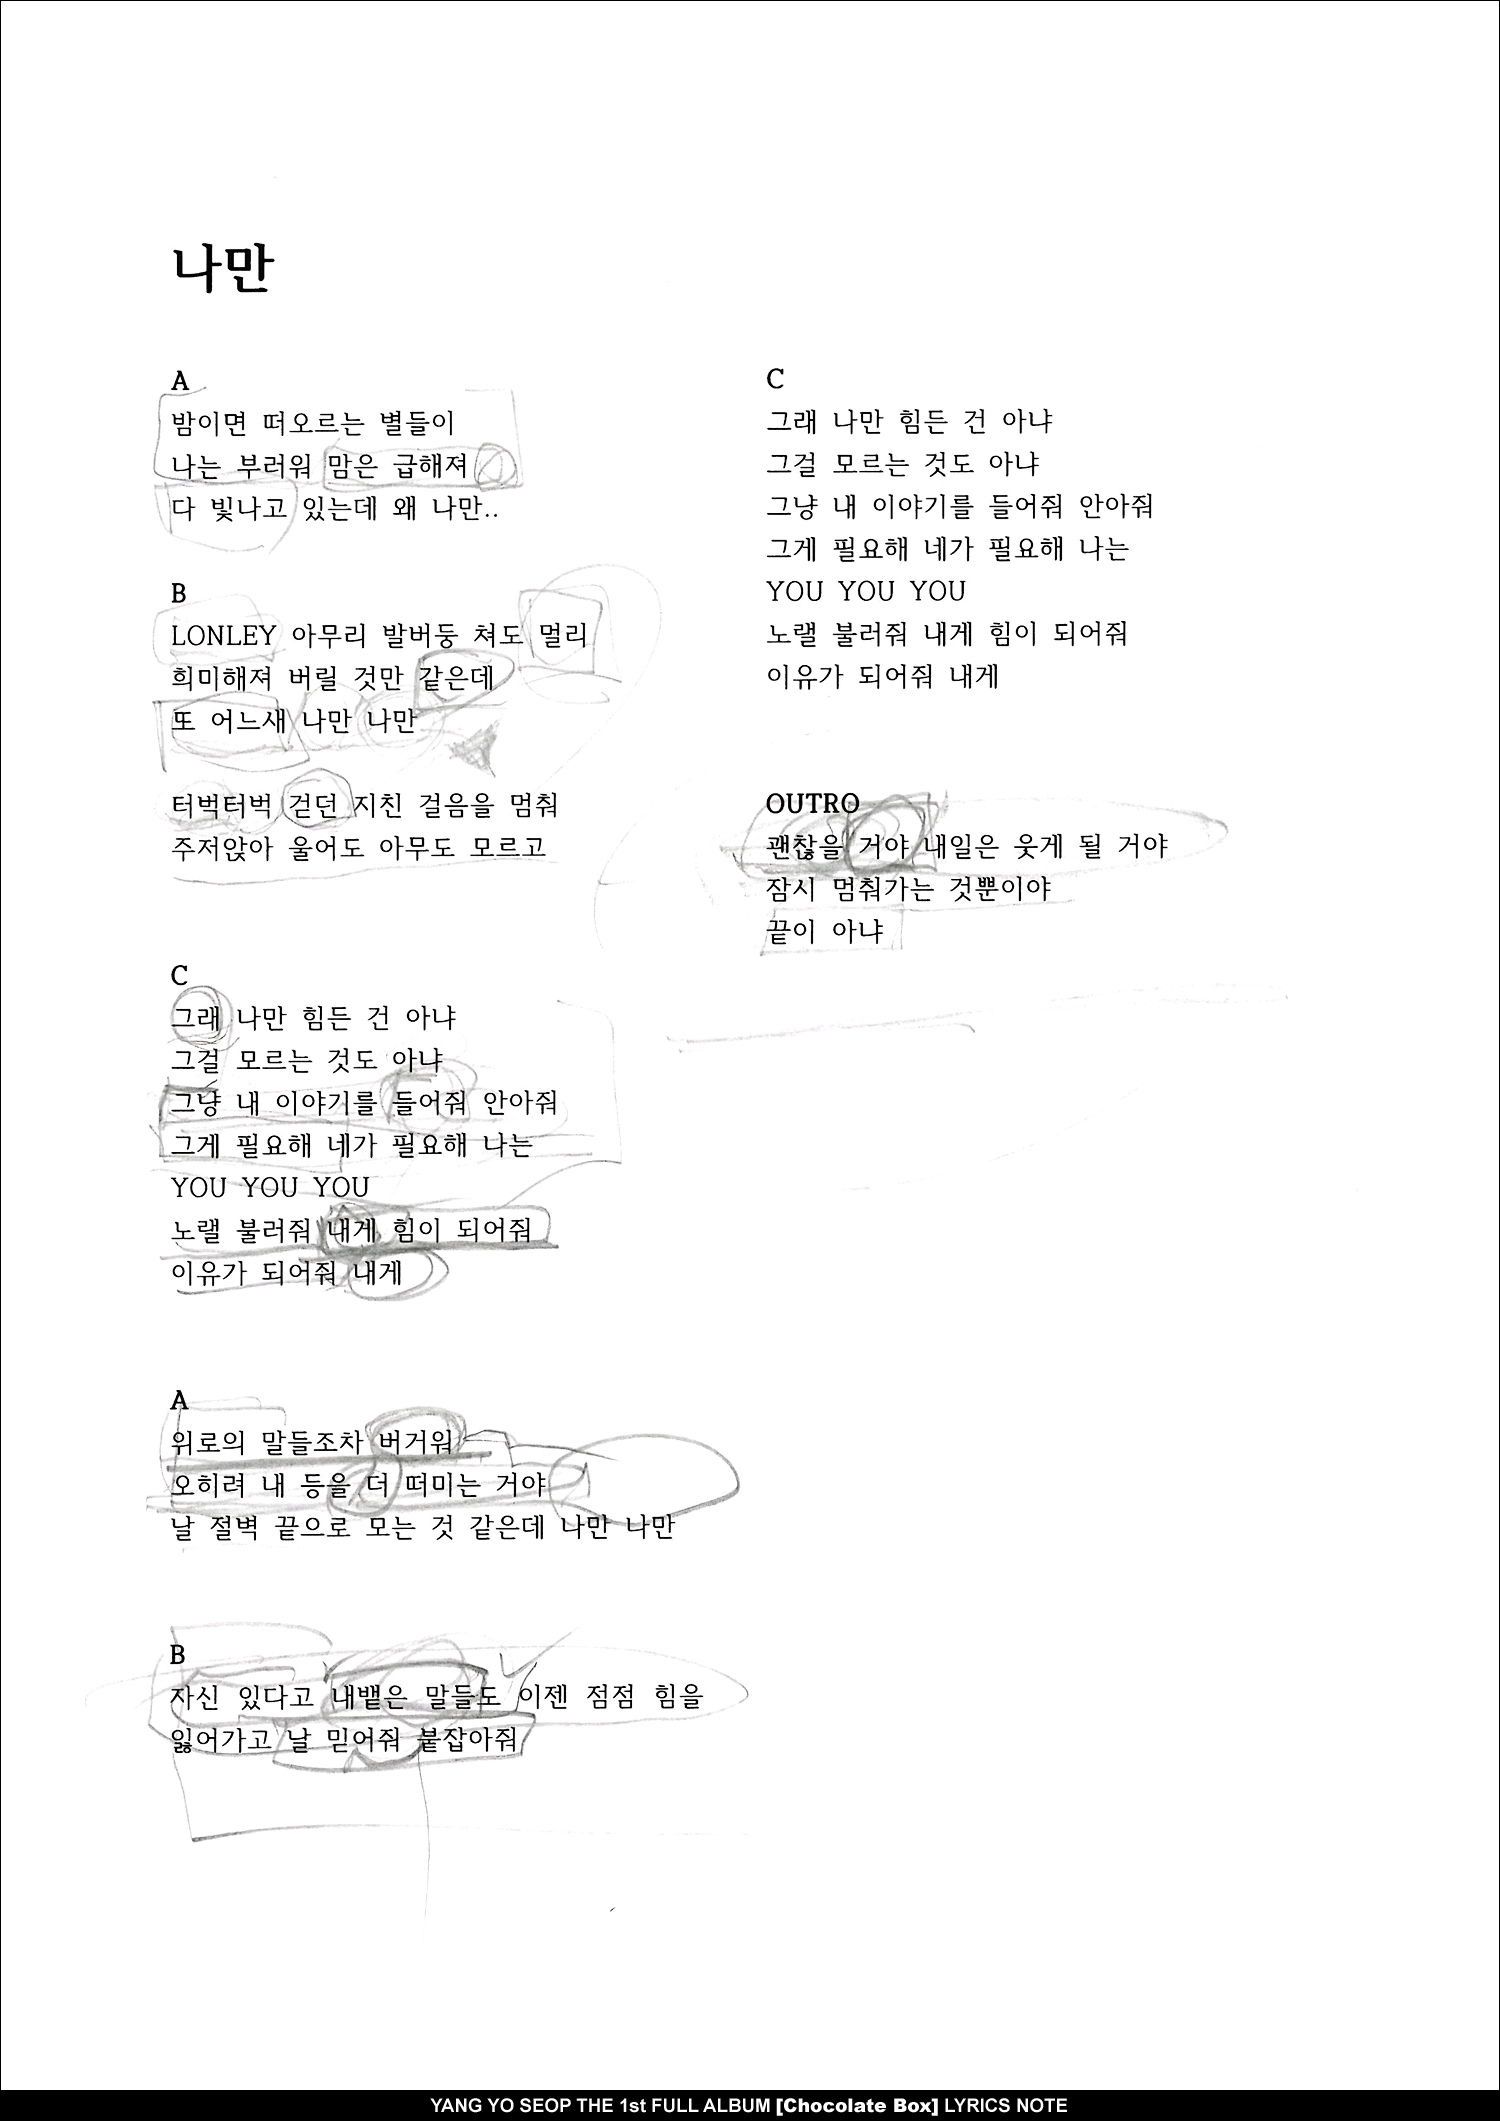 나만
A
밤이면 떠오르는 별들이
나는 부러워 맘은 급해져
다 빛나고 있는데 왜 나만..
B
LONLEY 아무리 발버둥 쳐도 멀리
희미해져 버릴 것만 같은데
또 어느새 나만 나만
터벅터벅 걷던 지친 걸음을 멈춰
주저앉아 울어도 아무도 모르고
C
그래 나만 힘든 건 아냐
그걸 모르는 것도 아냐
그냥 내 이야기를 들어줘 안아줘
그게 필요해 네가 필요해 나는
YOU YOU YOU
노랠 불러줘 내게 힘이 되어줘
이유가 되어줘 내게
A
위로의 말들조차 버거워
오히려 내 등을 더 떠미는 거야
날 절벽 끝으로 모는 것 같은데 나만 나만
B
자신 있다고 내뱉은 말들도 이젠 점점 힘을
잃어가고 날 믿어줘 붙잡아줘
C
그래 나만 힘든 건 아냐
그걸 모르는 것도 아냐
그냥 내 이야기를 들어줘 안아줘
그게 필요해 네가 필요해 나는
YOU YOU YOU
노랠 불러줘 내게 힘이 되어줘
이유가 되어줘 내게
OUTRO
괜찮을 거야 내일은 웃게 될 거야
잠시 멈춰가는 것뿐이야
끝이 아냐
YANG YO SEOP THE 1st FULL ALBUM [Chocolate Box] LYRICS NOTE